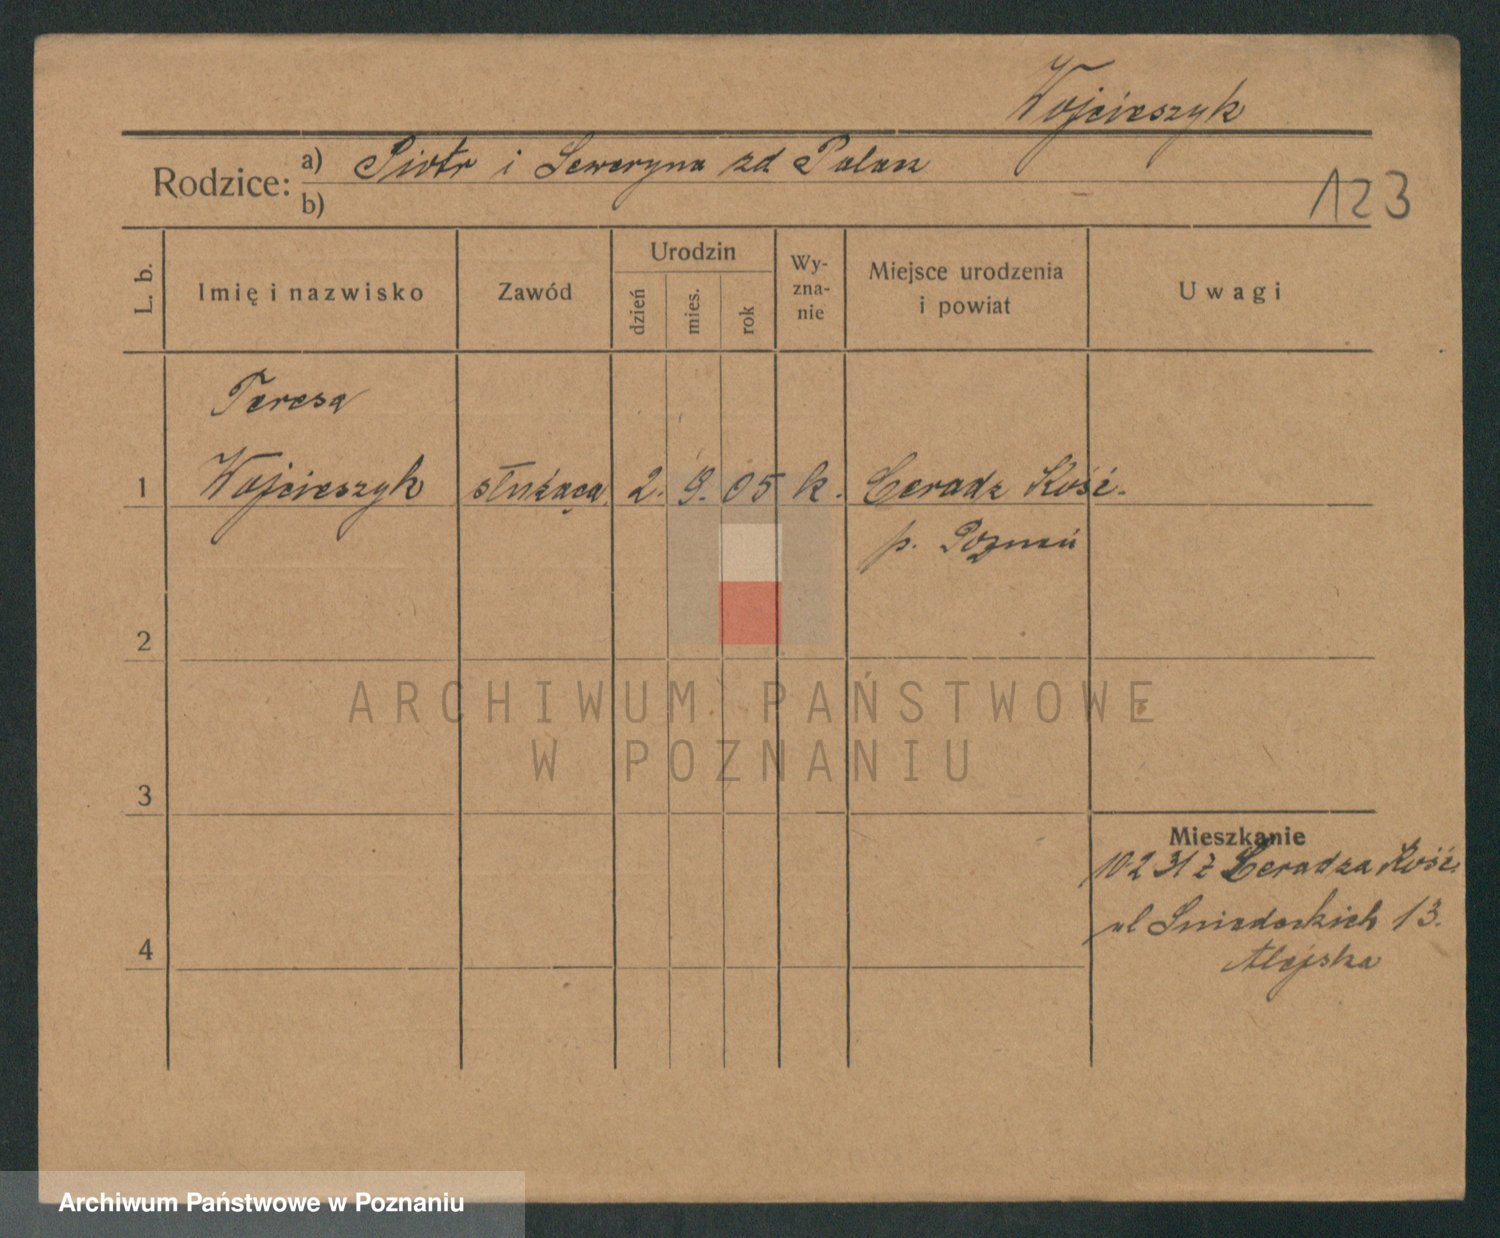 Wojcieszyk
Rodzice: a) Piotr i Seweryna zd Palacz
b)
123
L. b.
Imię i nazwisko
Zawód
Urodzin
dzień
mies.
rok
Wy-
zna-
nie
Miejsce urodzenia
i powiat
Uwagi
Teresa
1 Wojcieszyk służąca 2. 9. 05 k. Ceradz Kość.
p. Poznań
2
3
4
Mieszkanie
10 2 31 z Ceradza Kość.
ul Śniadeckich 13.
ARCHIWUM PAŃSTWOWE
W POZNANIU
Archiwum Państwowe w Poznaniu